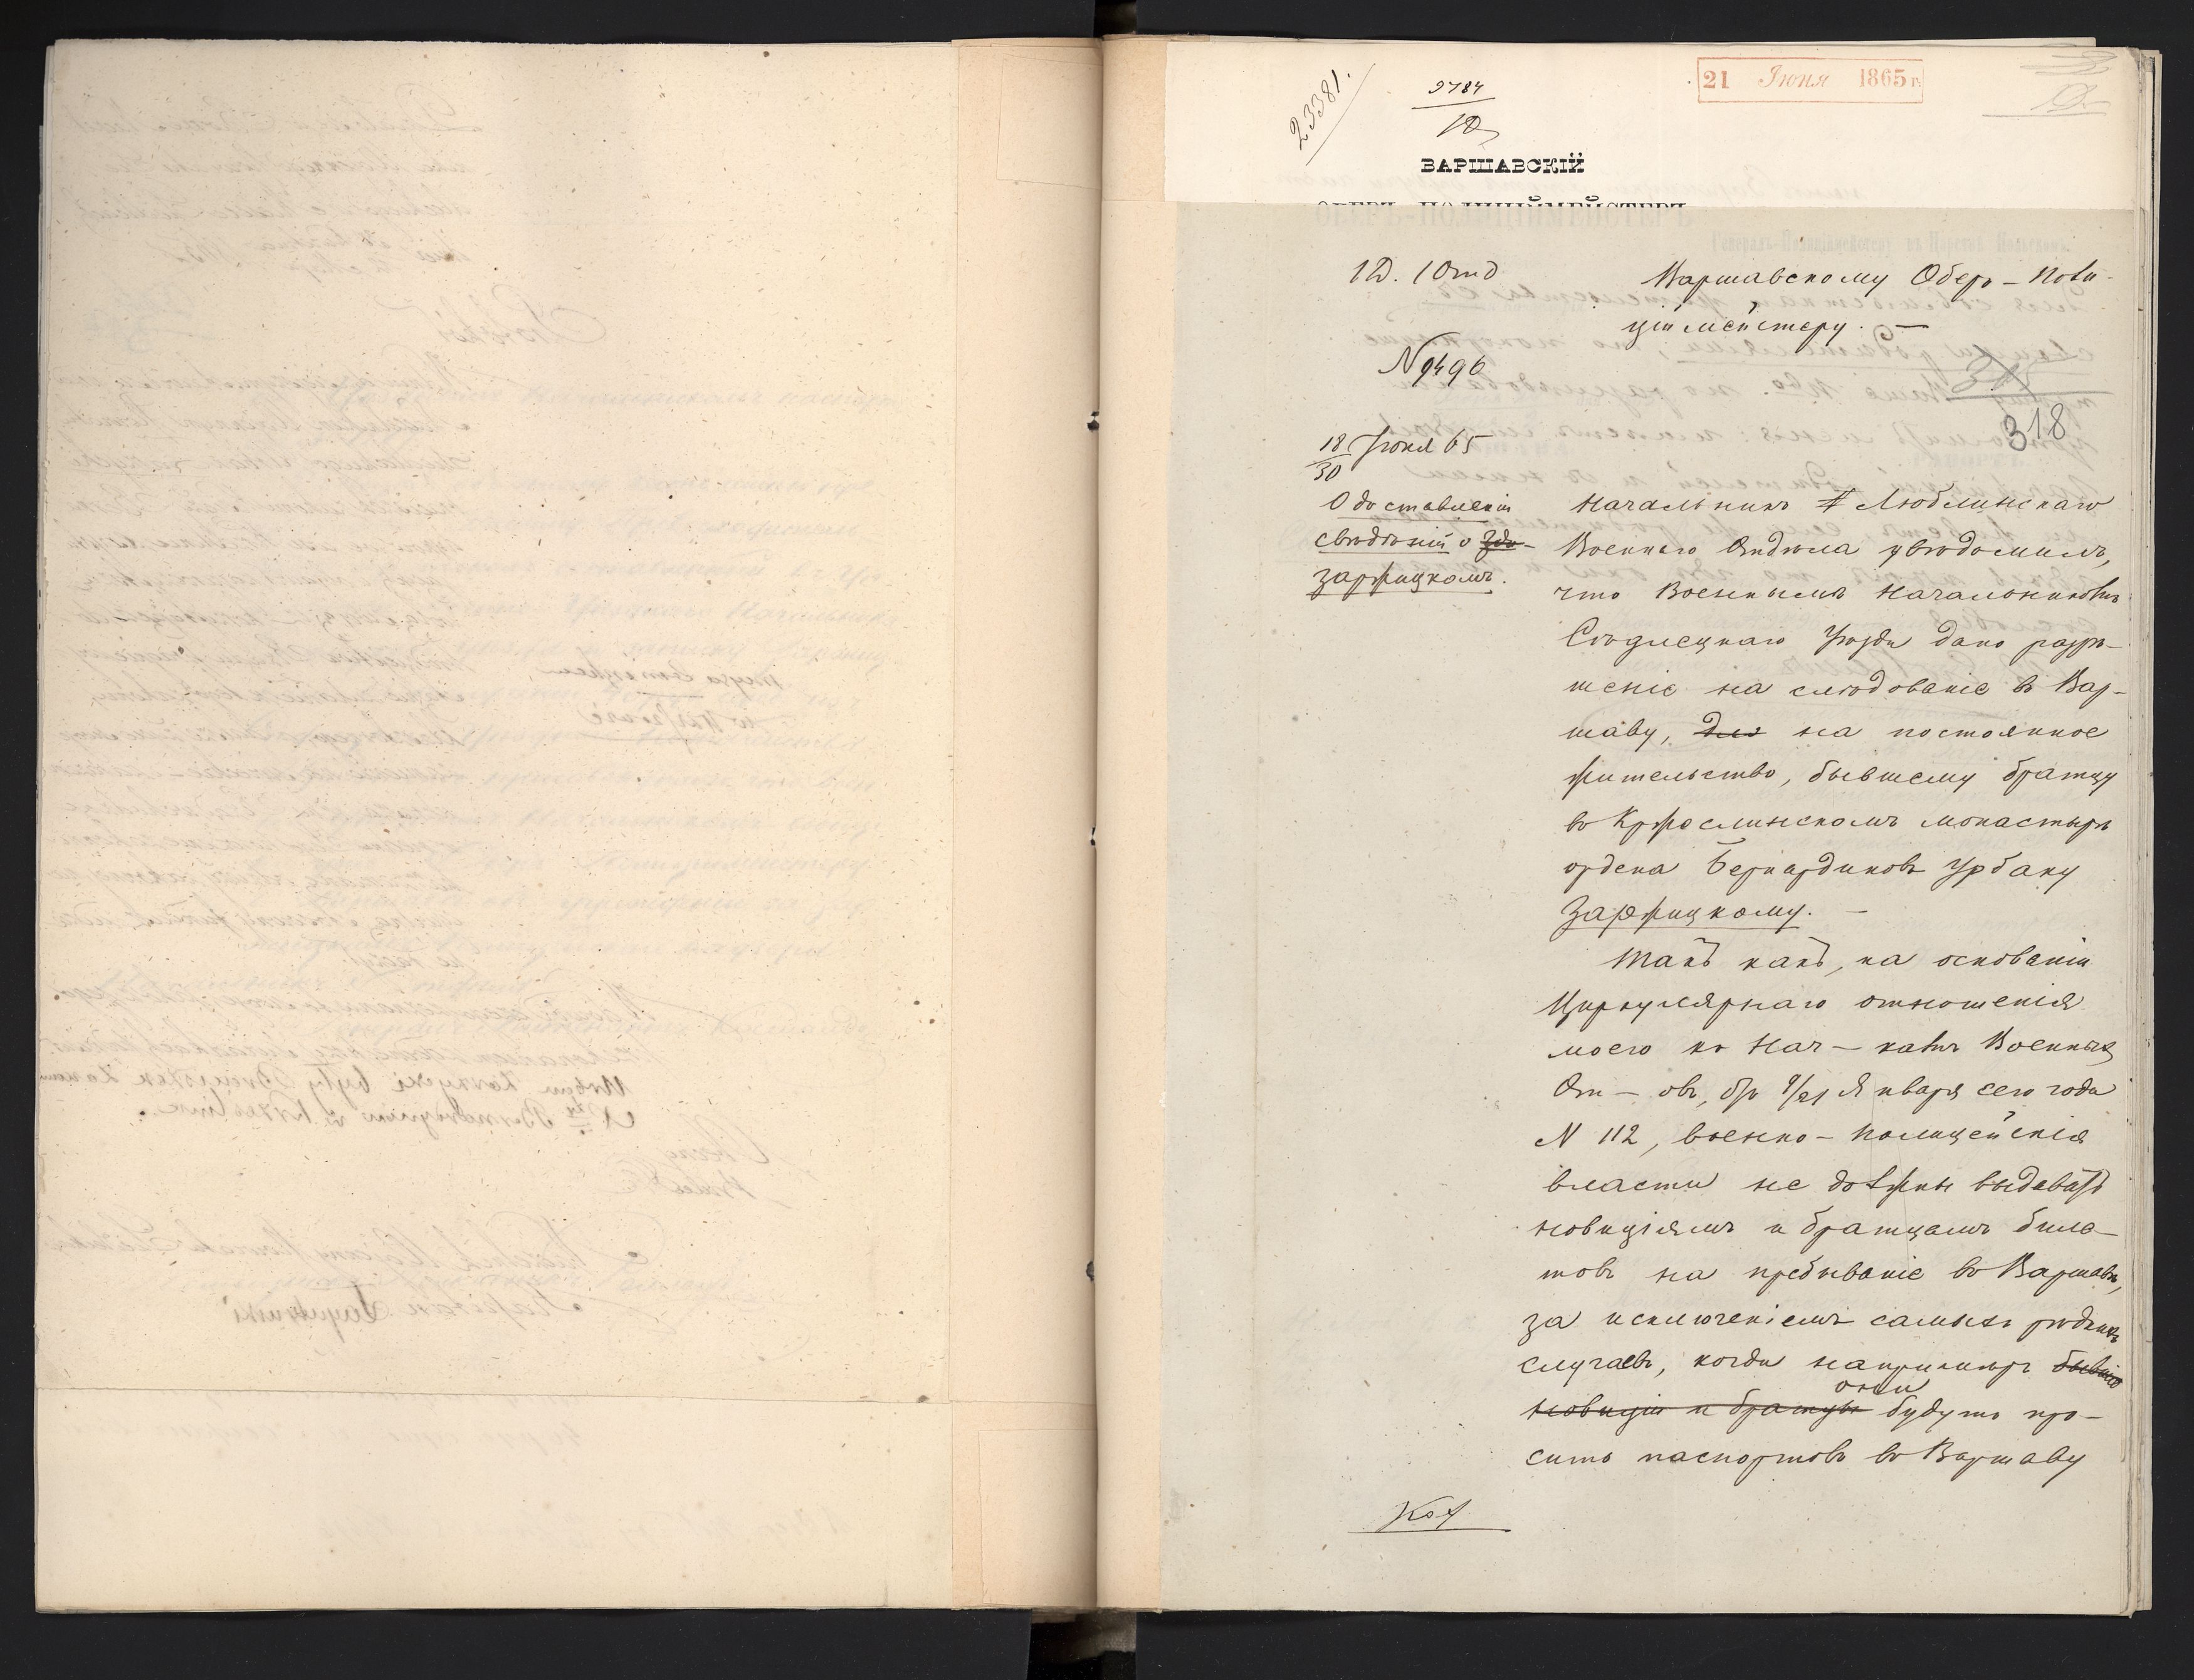 23381.
9784
10
21 Июня 1865 г.
ВАРШАВСКІЙ
ОБЕРЪ-ПОЛИЦІЙМЕЙСТЕРЪ
1 Д. 1 Отд
Варшавскому Оберъ-Поли-
ційместеру. —
N 9496
318
18/30 Июня 65
О доставленіи
свѣдѣній о
Заржицкомъ.
Начальникъ Люблинскаго
Военнаго Отдѣла увѣдомилъ,
что Военнымъ Начальникомъ
Сѣдлецкаго Уѣзда дано разрѣ-
шеніе на слѣдованіе въ Вар-
шаву, для на постоянное
жительство, бывшему братцу
въ Кржеслинскомъ монастырѣ
ордена Бернардиновъ Урбану
Заржицкому. —
Такъ какъ, на основаніи
Циркулярнаго отношенія
моего къ Нач-камъ Военныхъ
От-овъ, отъ 9/21 Января сего года
N 112, военно-полицейскія
власти не должны выдавать
новиціямъ и братцамъ биле-
товъ на пребываніе въ Варшавѣ,
за исключеніемъ самыхъ рѣдкихъ
случаевъ, когда напримѣръ бывшіе
они
новиціи и братцы будутъ про-
сить паспортовъ въ Варшаву